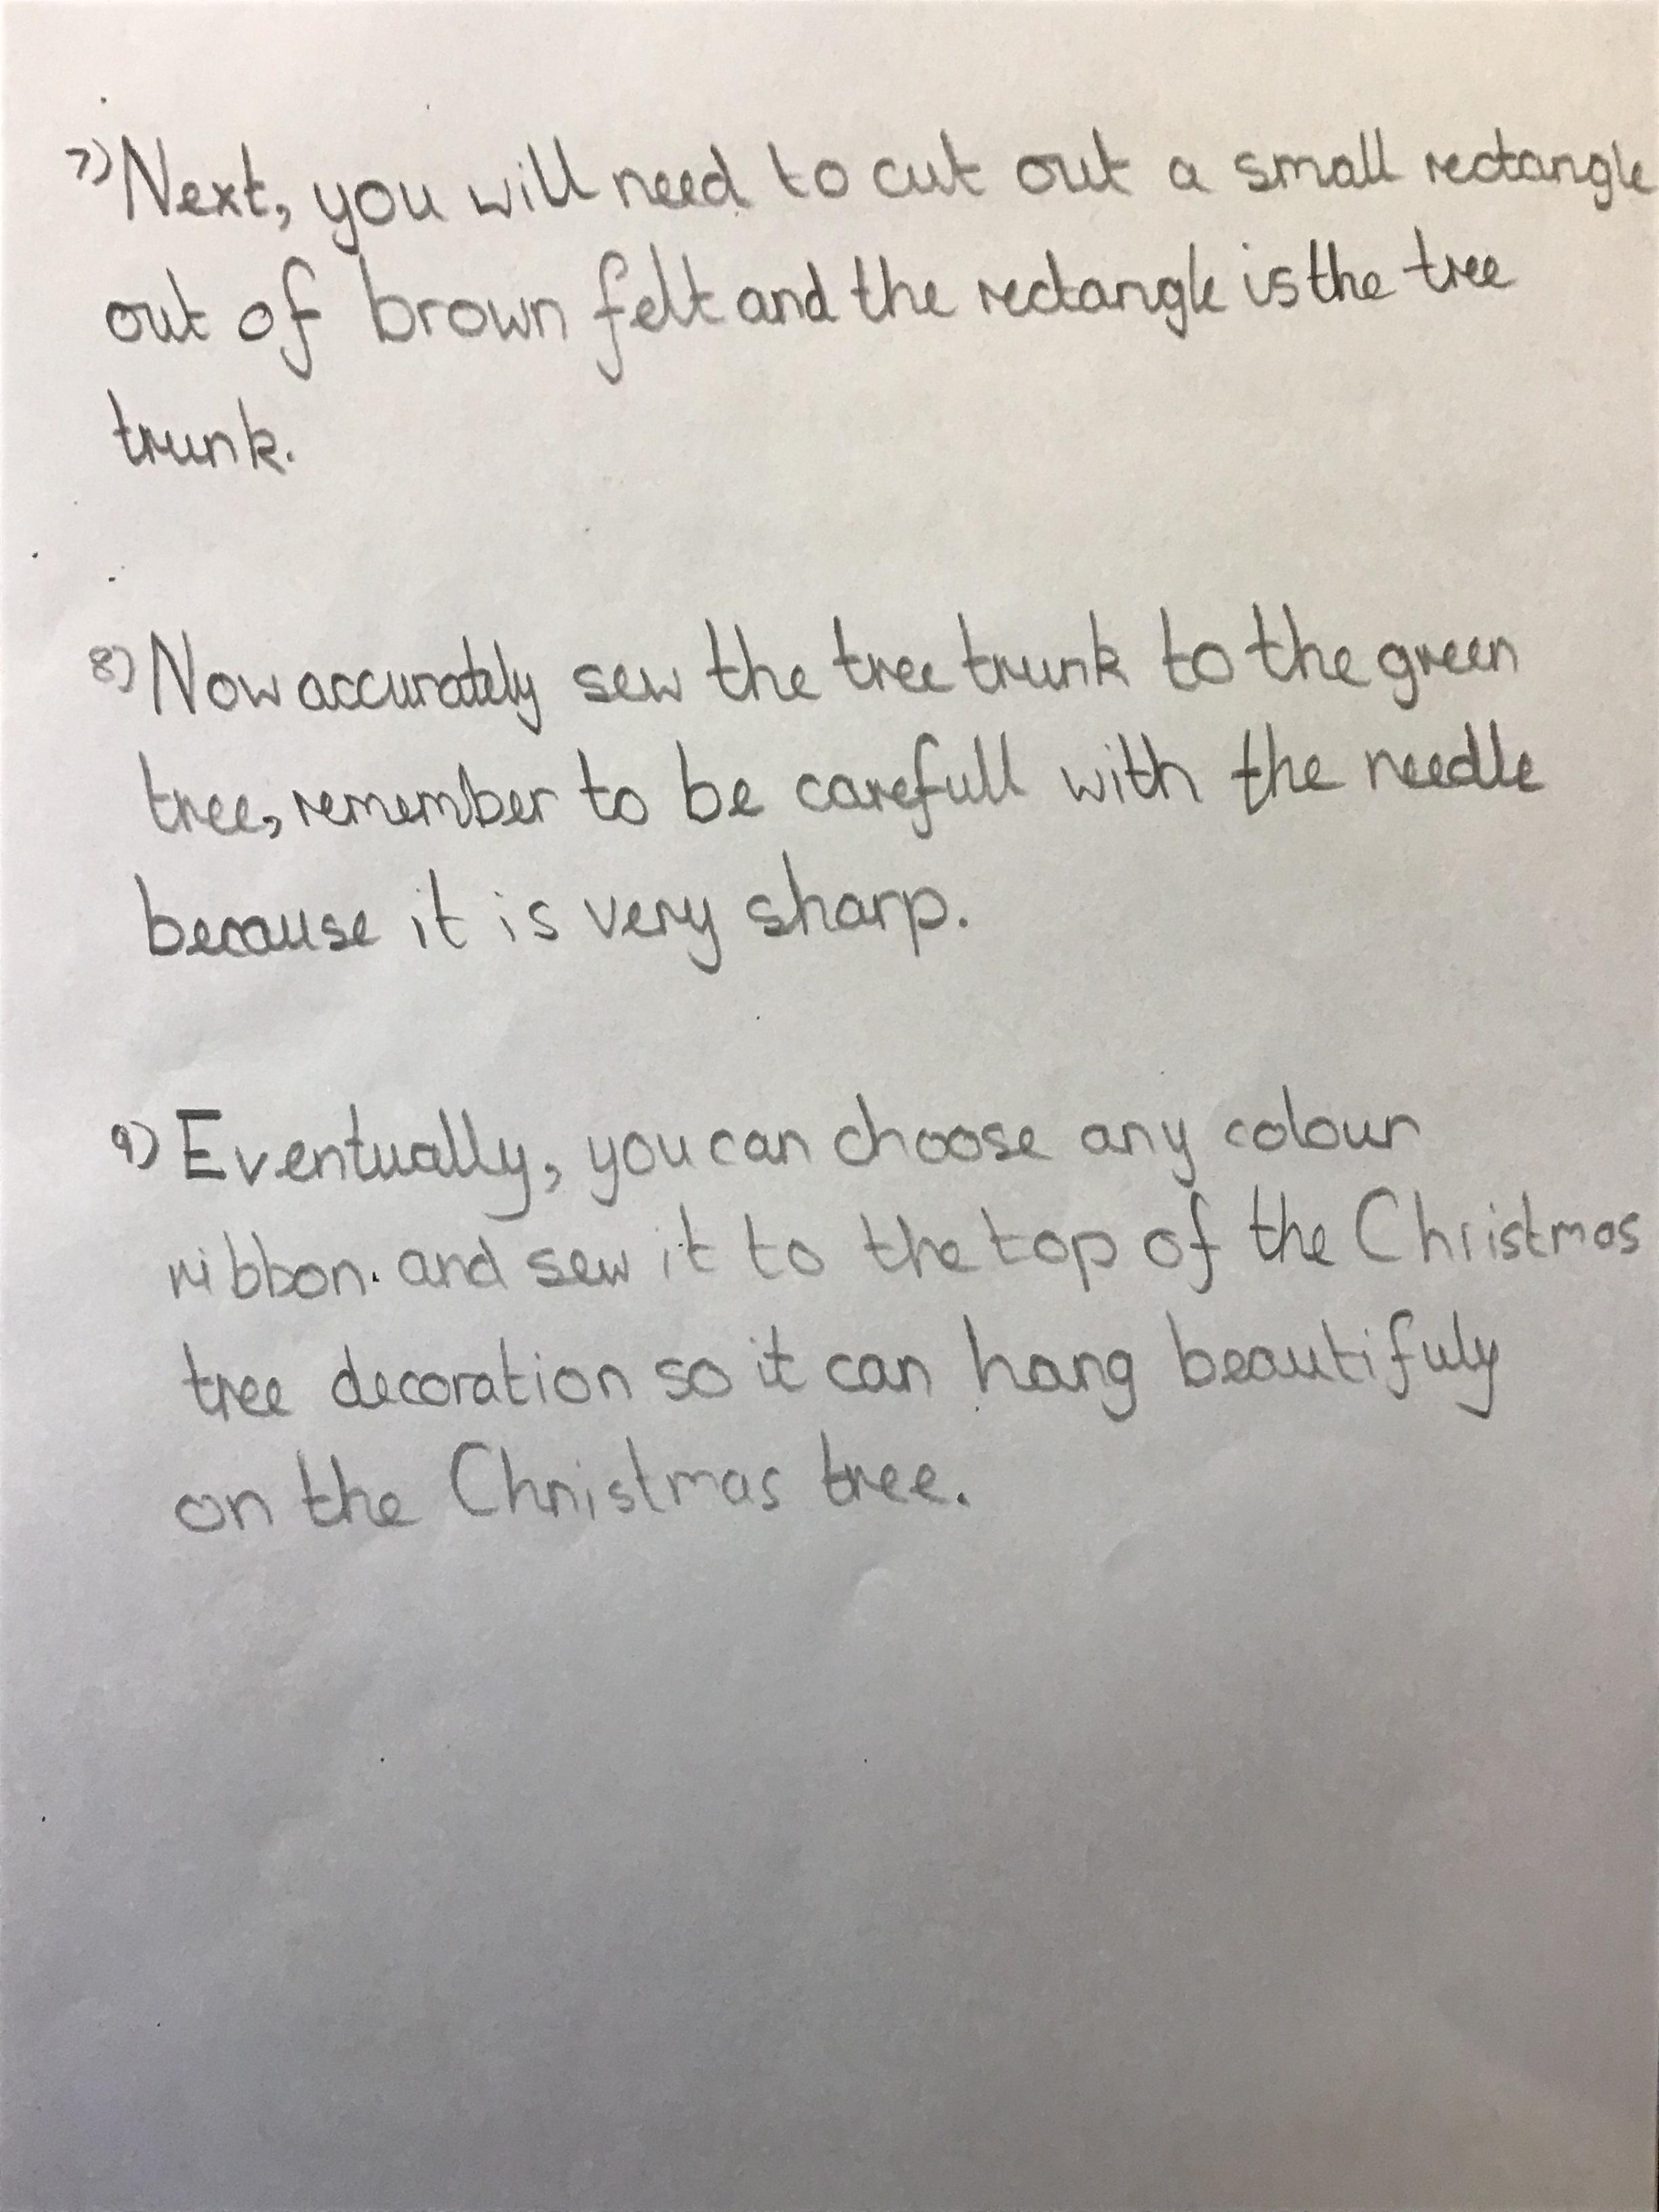 7) Next, you will need to cut out a small rectangle
out of brown felt and the rectangle is the tree
trunk.
8) Now accurately sew the tree trunk to the green
tree, remember to be carefull with the needle
because it is very sharp.
9) Eventually, you can choose any colour
ribbon. and sew it to the top of the Christmas
tree decoration so it can hang beautifuly
on the Christmas tree.